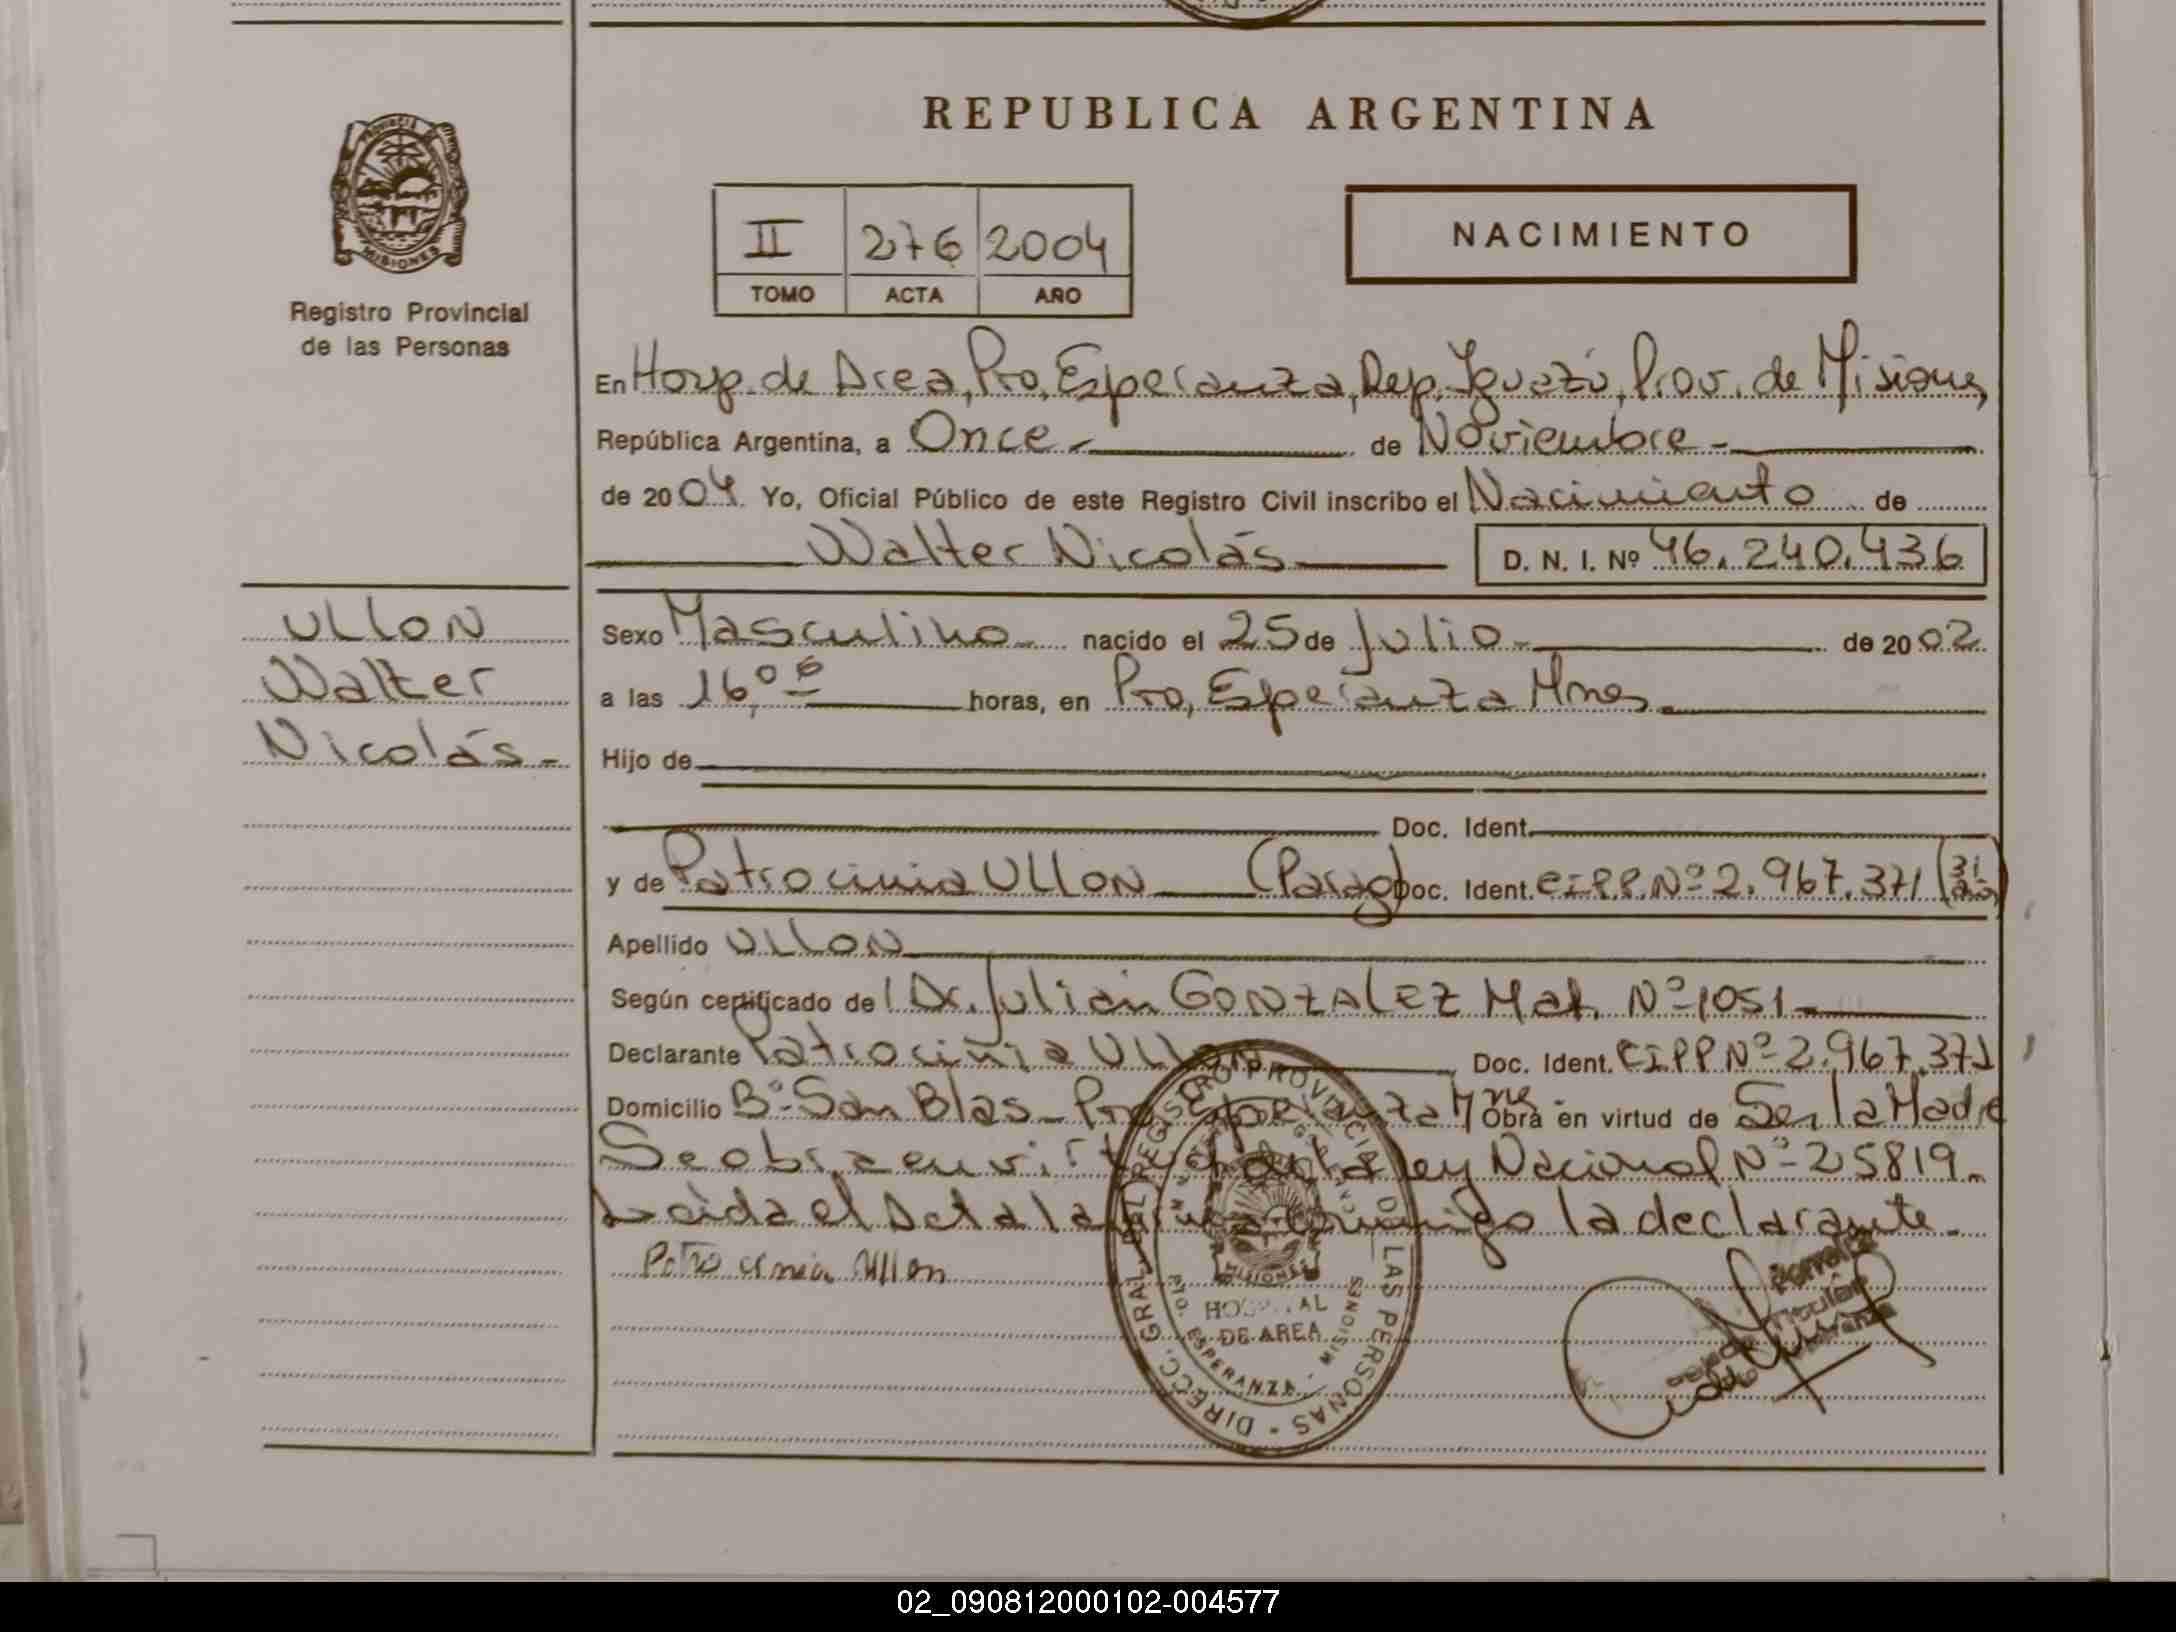 REPUBLICA ARGENTINA
PROVINCIA
MISIONES
Registro Provincial
de las Personas
II 276 2004
TOMO ACTA AÑO
NACIMIENTO
En Hosp. de Area, Pto, Esperanza, Dep. Iguazú, Prov. de Misiones,
República Argentina, a Once.- de Noviembre -
de 2004. Yo, Oficial Público de este Registro Civil inscribo el Nacimiento de
Walter Nicolás D. N. I. Nº 46.240.436
ULLON
Walter
Nicolás-
Sexo Masculino- nacido el 25 de Julio- de 2002
a las 16,00 horas, en Pto, Esperanza Mnes.
Hijo de
Doc. Ident.
y de Patrocinia ULLON (Parag) Doc. Ident. CIPP. Nº 2.967.371 (31 años)
Apellido ULLON
Según certificado de Dr. Julian GONZALEZ Mat. Nº 1051-
Declarante Patrocinia Ullon Doc. Ident. CIPP Nº 2.967.371
Domicilio Bº San Blas- Pto Esperanza Mnes. Obra en virtud de Ser la Madre
Se obra en virtud de la Ley Nacional Nº 25819.
Leida el Acta la firma conmigo la declarante.
Patrocinia Ullon
DIRECC. GRAL. DEL REGISTRO PROVINCIAL DE LAS PERSONAS
MISIONES
HOSPITAL
DE AREA
PTO. ESPERANZA - MISIONES
02_090812000102-004577